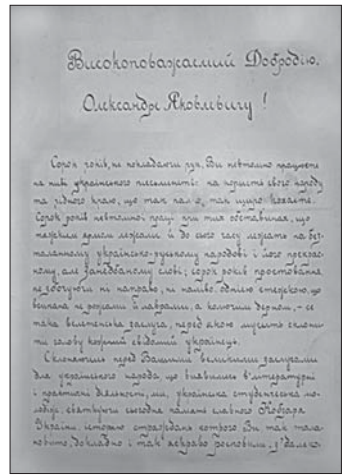 Високоповажаємий Добродію,
Олександре Яковлевичу!
Сорок років, не покладаючи рук, Ви невтомно працюєте
на ниві українського письменства на користь свого народу
та рідного краю, що так палко, так щиро кохаєте.
Сорок років невтомної праці при тих обставинах, що
тяжким ярмом лежали й до сього часу лежать на без-
таланному українсько-руському народові і його прекрас-
ному, але занедбаному слові; сорок років простування,
не збочуючи ні направо, ні наліво, однією стежкою, що
всипана не рожами й лаврами, а колючим терном, – се
така велетенська заслуга, перед якою мусить схили-
ти голову кожний свідомий українець.
Схиляючись перед Вашими великими заслугами
для українського народа, що виявились в литературні
і практичні діяльности, ми, українська студентська мо-
лодіж, святкуючи сьогодня память славного Кобзаря
України, історию страждань котрого Ви так тала-
новито, докладно і так яскраво розповіли, з далеко-